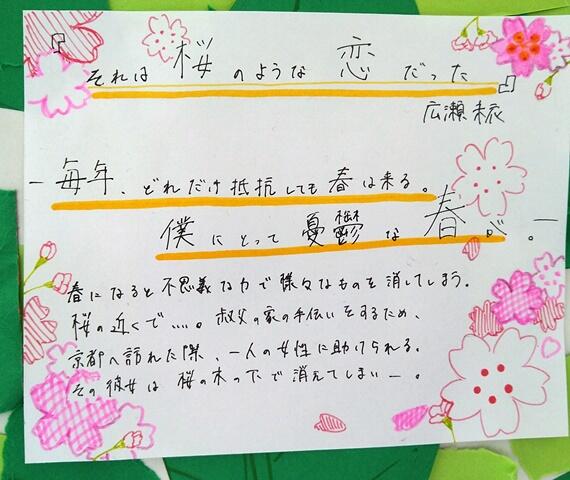 『それは桜のような恋だった』
広瀬未衣
―毎年、どれだけ抵抗しても春は来る。
僕にとって憂鬱な春が。―
春になると不思議な力で様々なものを消してしまう。
桜の近くで……。叔父の家の手伝いをするため、
京都へ訪れた際、一人の女性に助けられる。
その彼女は桜の木の下で消えてしまい―。